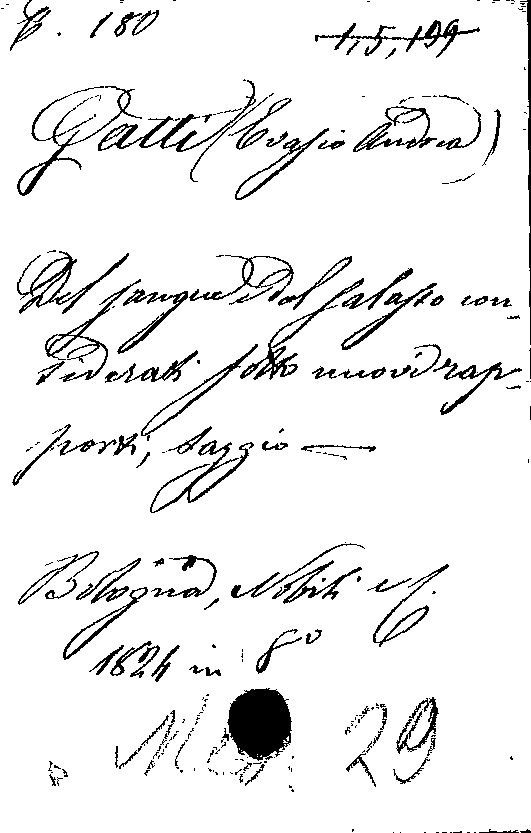 B. 180 1,5,199
Gatti (Evasio Andrea)
Del sangue e del salasso con-
siderati sotto nuovi rap-
porti, saggio —
Bologna, Nobili e C.
1824 in 8º
Med. 29